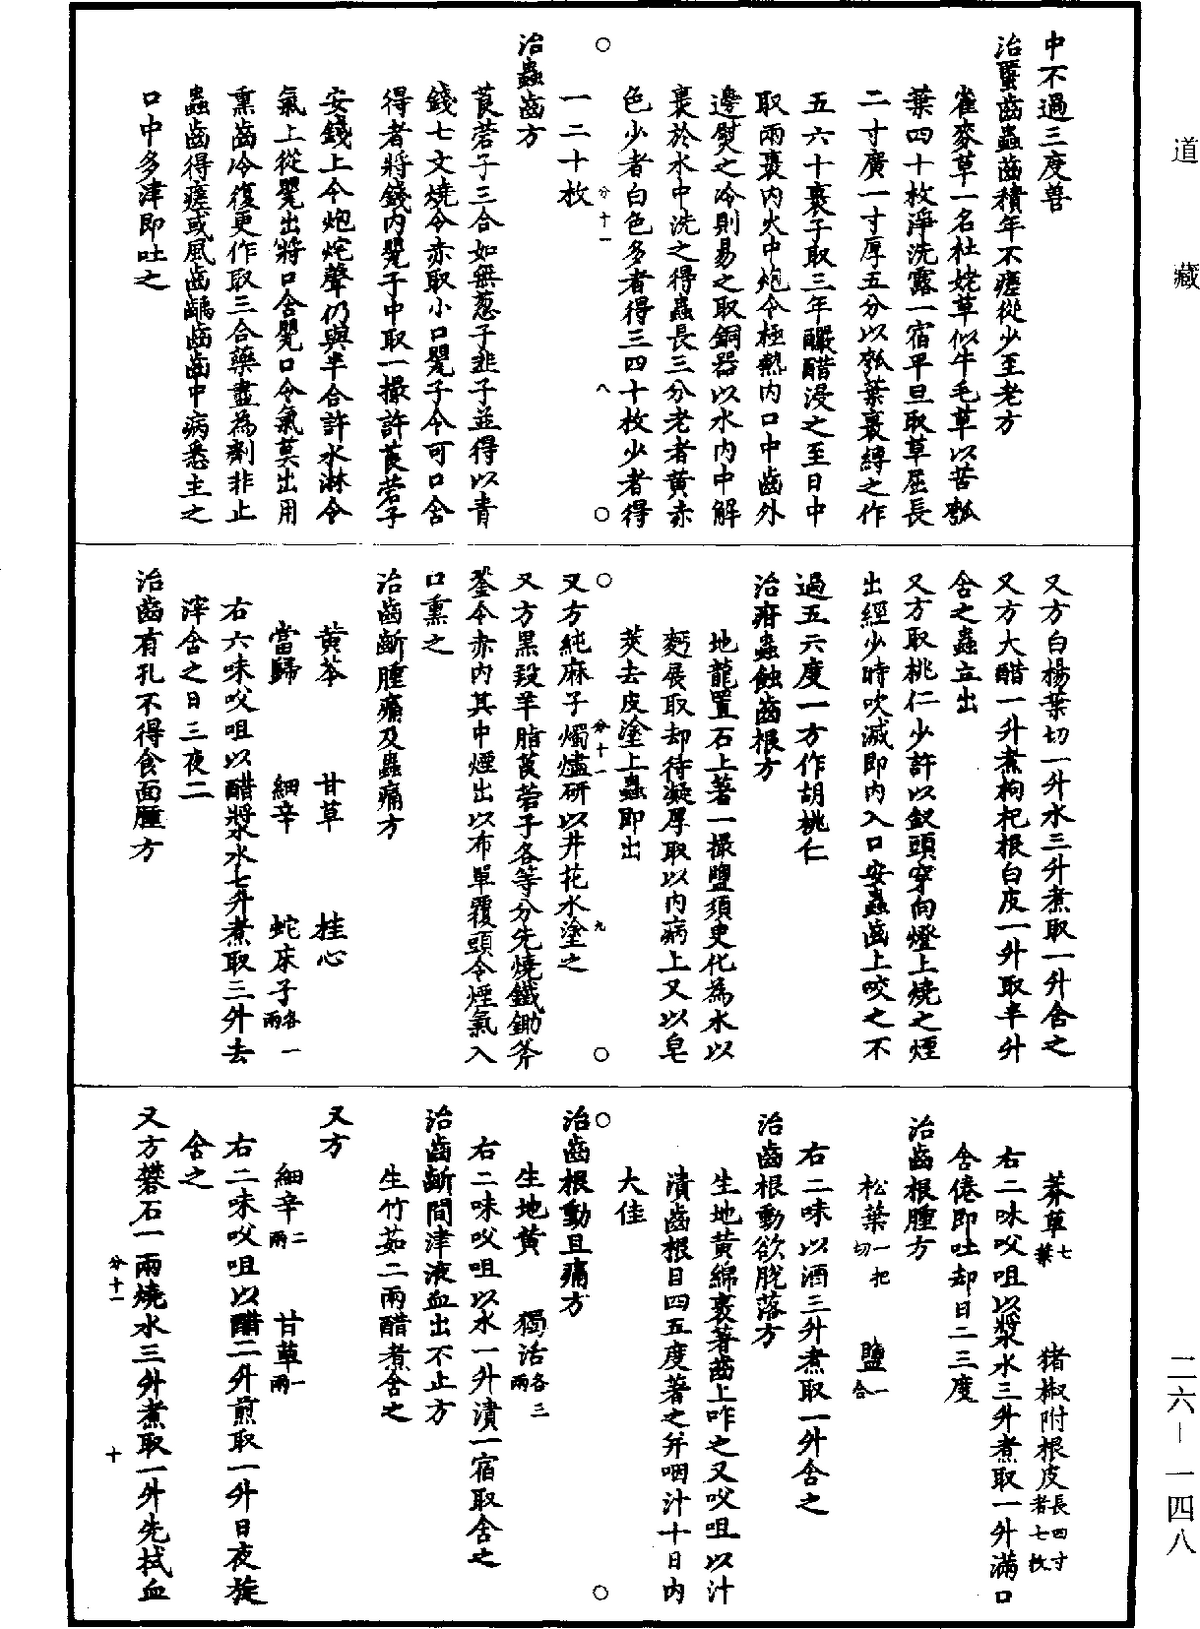 道藏
中不過三度善
治䘌齒蟲齒積年不瘥從少至老方
雀麥草一名杜姥草似牛毛草以苦瓠
葉四十枚淨洗露一宿平旦取草屈長
二寸廣一寸厚五分以瓠葉裹縛之作
五六十裹子取三年釅醋浸之至日中
取兩裹内火中炮令極熱内口中齒外
邊熨之冷則易之取銅器以水内中解
裹於水中洗之得蟲長三分老者黃赤
色少者白色多者得三四十枚少者得
分十一 八
一二十枚
治蟲齒方
莨菪子三合如無葱子韭子並得以青
錢七文燒令赤取小口甖子令可口含
得者將錢内甖子中取一撮許莨菪子
安錢上令炮炧聲仍與半合許水淋令
氣上從甖出將口含甖口令氣莫出用
熏齒冷復更作取三合藥盡為劑非止
蟲齒得瘥或風齒齲齒齒中病悉主之
口中多津即吐之
又方白楊葉切一升水三升煮取一升含之
又方大醋一升煮枸杞根白皮一升取半升
含之蟲立出
又方取桃仁少許以釵頭穿向燈上燒之煙
出經少時吹滅即内入口安蟲齒上咬之不
過五六度一方作胡桃仁
治疳蟲蝕齒根方
地龍置石上著一撮鹽須臾化為水以
麪展取却待凝厚取以内病上又以皂
莢去皮塗上蟲即出
分十一 九
又方純麻子燭燼研以井花水塗之
又方黑羖羊脂莨菪子各等分先燒鐵鋤斧
銎令赤内其中煙出以布單覆頭令煙氣入
口熏之
治齒齗腫痛及蟲痛方
黃芩 甘草 桂心
當歸 細辛 蛇床子各一兩
右六味㕮咀以醋漿水七升煮取三升去
滓含之日三夜二
治齒有孔不得食面腫方
莽草七葉 猪椒附根皮長四寸者七枚
右二味㕮咀以漿水三升煮取一升滿口
含倦即吐却日二三度
治齒根腫方
松葉一把切 鹽一合
右二味以酒三升煮取一升含之
治齒根動欲脫落方
生地黃綿裹著齒上咋之又㕮咀以汁
漬齒根日四五度著之并咽汁十日内
大佳
治齒根動且痛方
生地黃 獨活各三兩
右二味㕮咀以水一升漬一宿取含之
治齒齗間津液血出不止方
生竹茹二兩醋煮含之
又方
細辛二兩 甘草一兩
右二味㕮咀以醋二升煎取一升日夜旋
含之
又方礬石一兩燒水三升煮取一升先拭血
分十一 十
二六—一四八